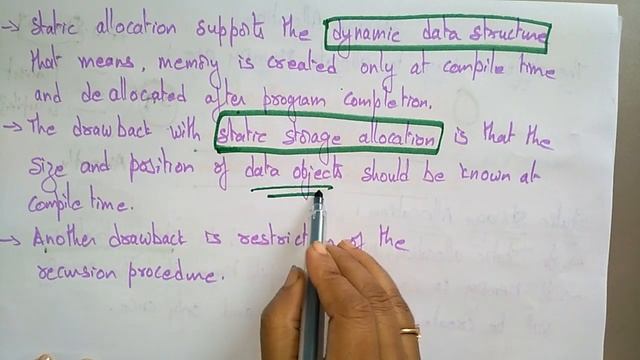 → Static allocation supports the dynamic data structure
that means, memory is created only at compile time
and deallocated after program completion.
→ The drawback with static storage allocation is that the
size and position of data objects should be known at
compile time.
→ Another drawback is of the
recursion procedure.